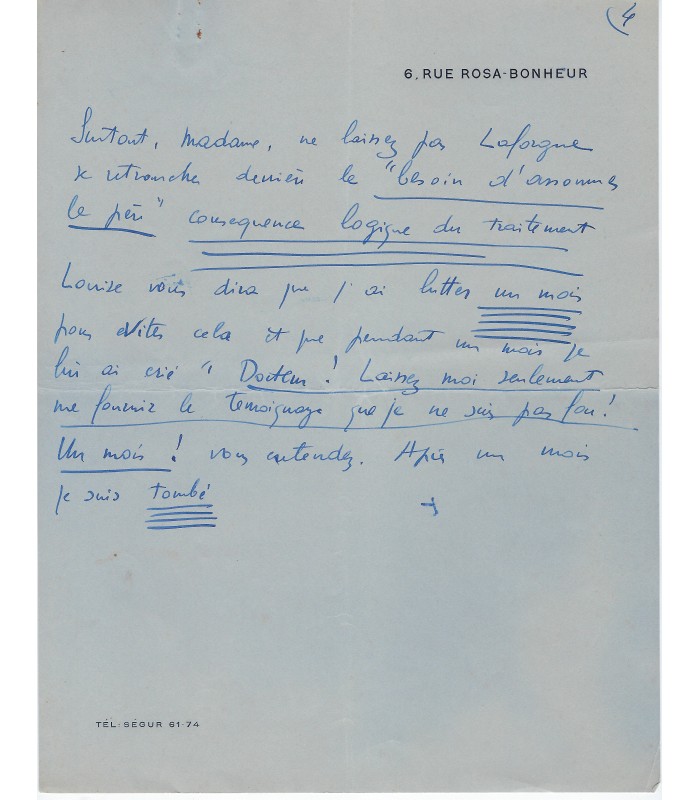 4
6, RUE ROSA-BONHEUR
Surtout, Madame, ne laissez pas Laforgue
se retrancher derrière le "besoin d'assommer
le père" consequence logique du traitement
Louise vous dira que j'ai lutter un mois
pour eviter cela et que pendant un mois je
lui ai crié "Docteur! Laissez moi seulement
me fournir le temoignage que je ne suis pas fou!
Un mois! vous entendez. Après un mois
je suis tombé
TÉL: SÉGUR 61-74